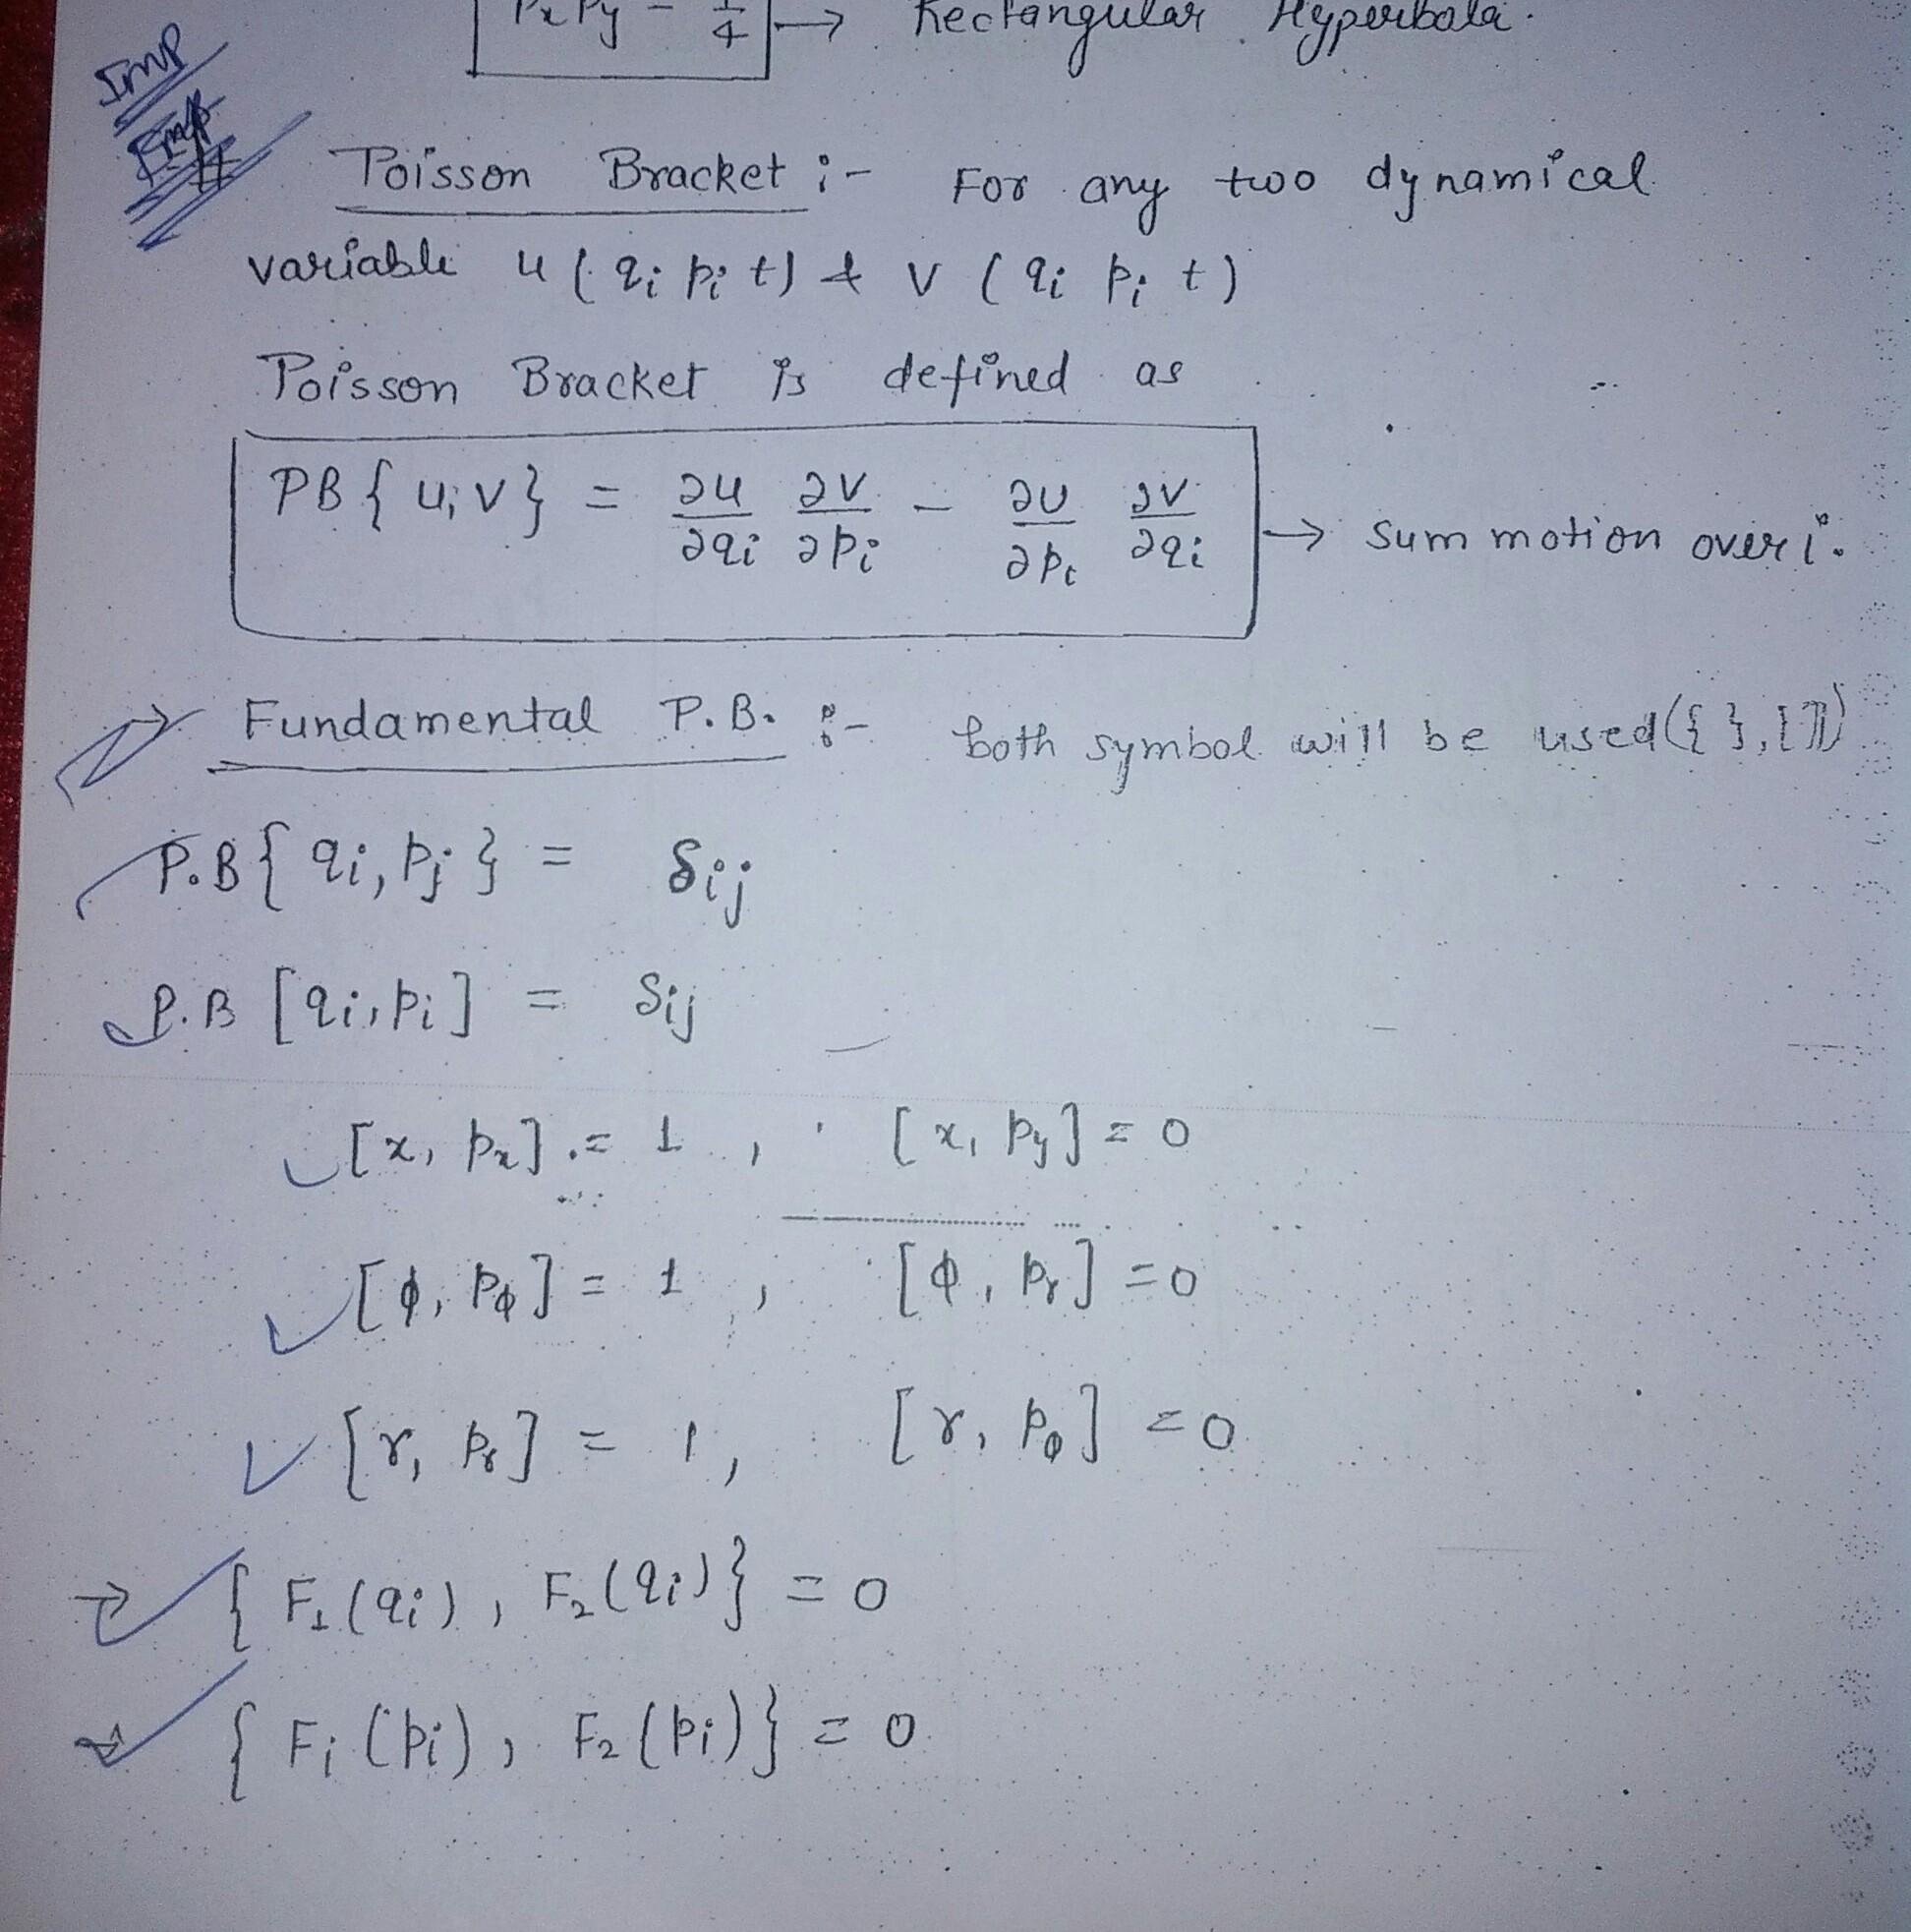 PxPy - 1/4 → Rectangular Hyperbola.
Imp
Imp
# Poisson Bracket :- For any two dynamical
variable u (qi pi t) & v (qi pi t)
Poisson Bracket is defined as
PB { u, v } = ∂u/∂qi ∂v/∂pi - ∂u/∂pi ∂v/∂qi → Sum motion over i.
Fundamental P.B. :- both symbol will be used ({ }, [ ])
P.B { qi, pj } = δij
P.B [qi, pi] = δij
[x, px] = 1 , [x, py] = 0
[ϕ, pϕ] = 1 , [ϕ, pr] = 0
[r, pr] = 1, [r, pϕ] = 0
→ { F1 (qi) , F2 (qi) } = 0
→ { Fi (pi) , F2 (pi) } = 0